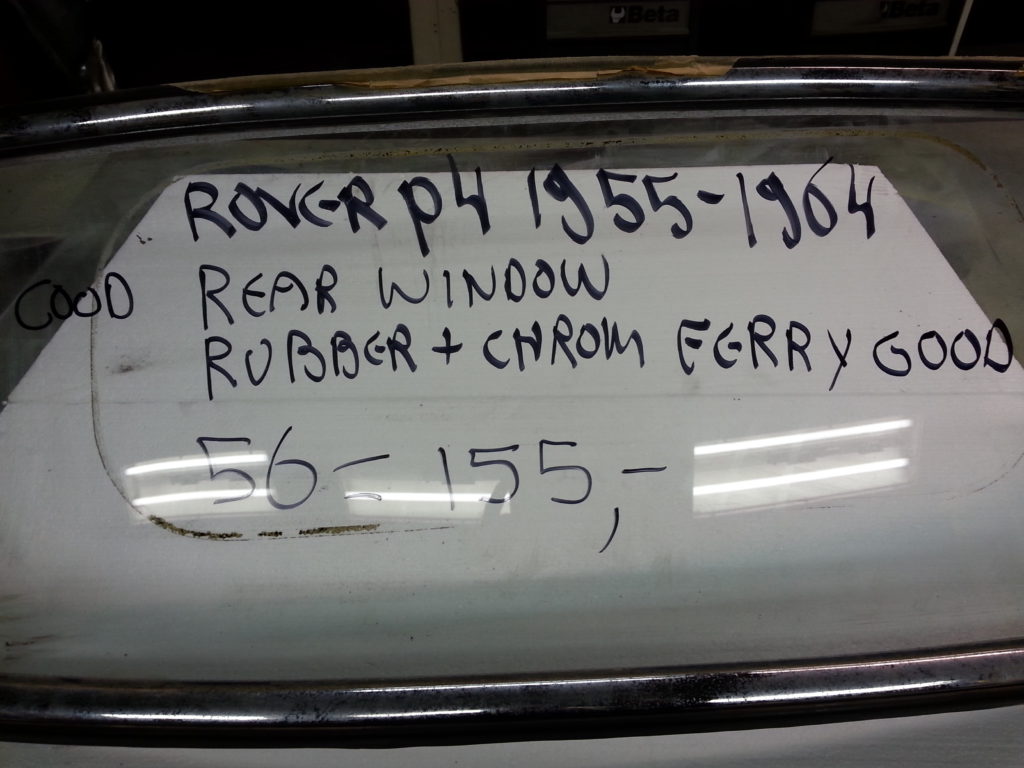 Beta Beta
ROVER P4 1955-1964
GOOD REAR WINDOW
RUBBER + CHROM FERRY GOOD
56 = 155,-